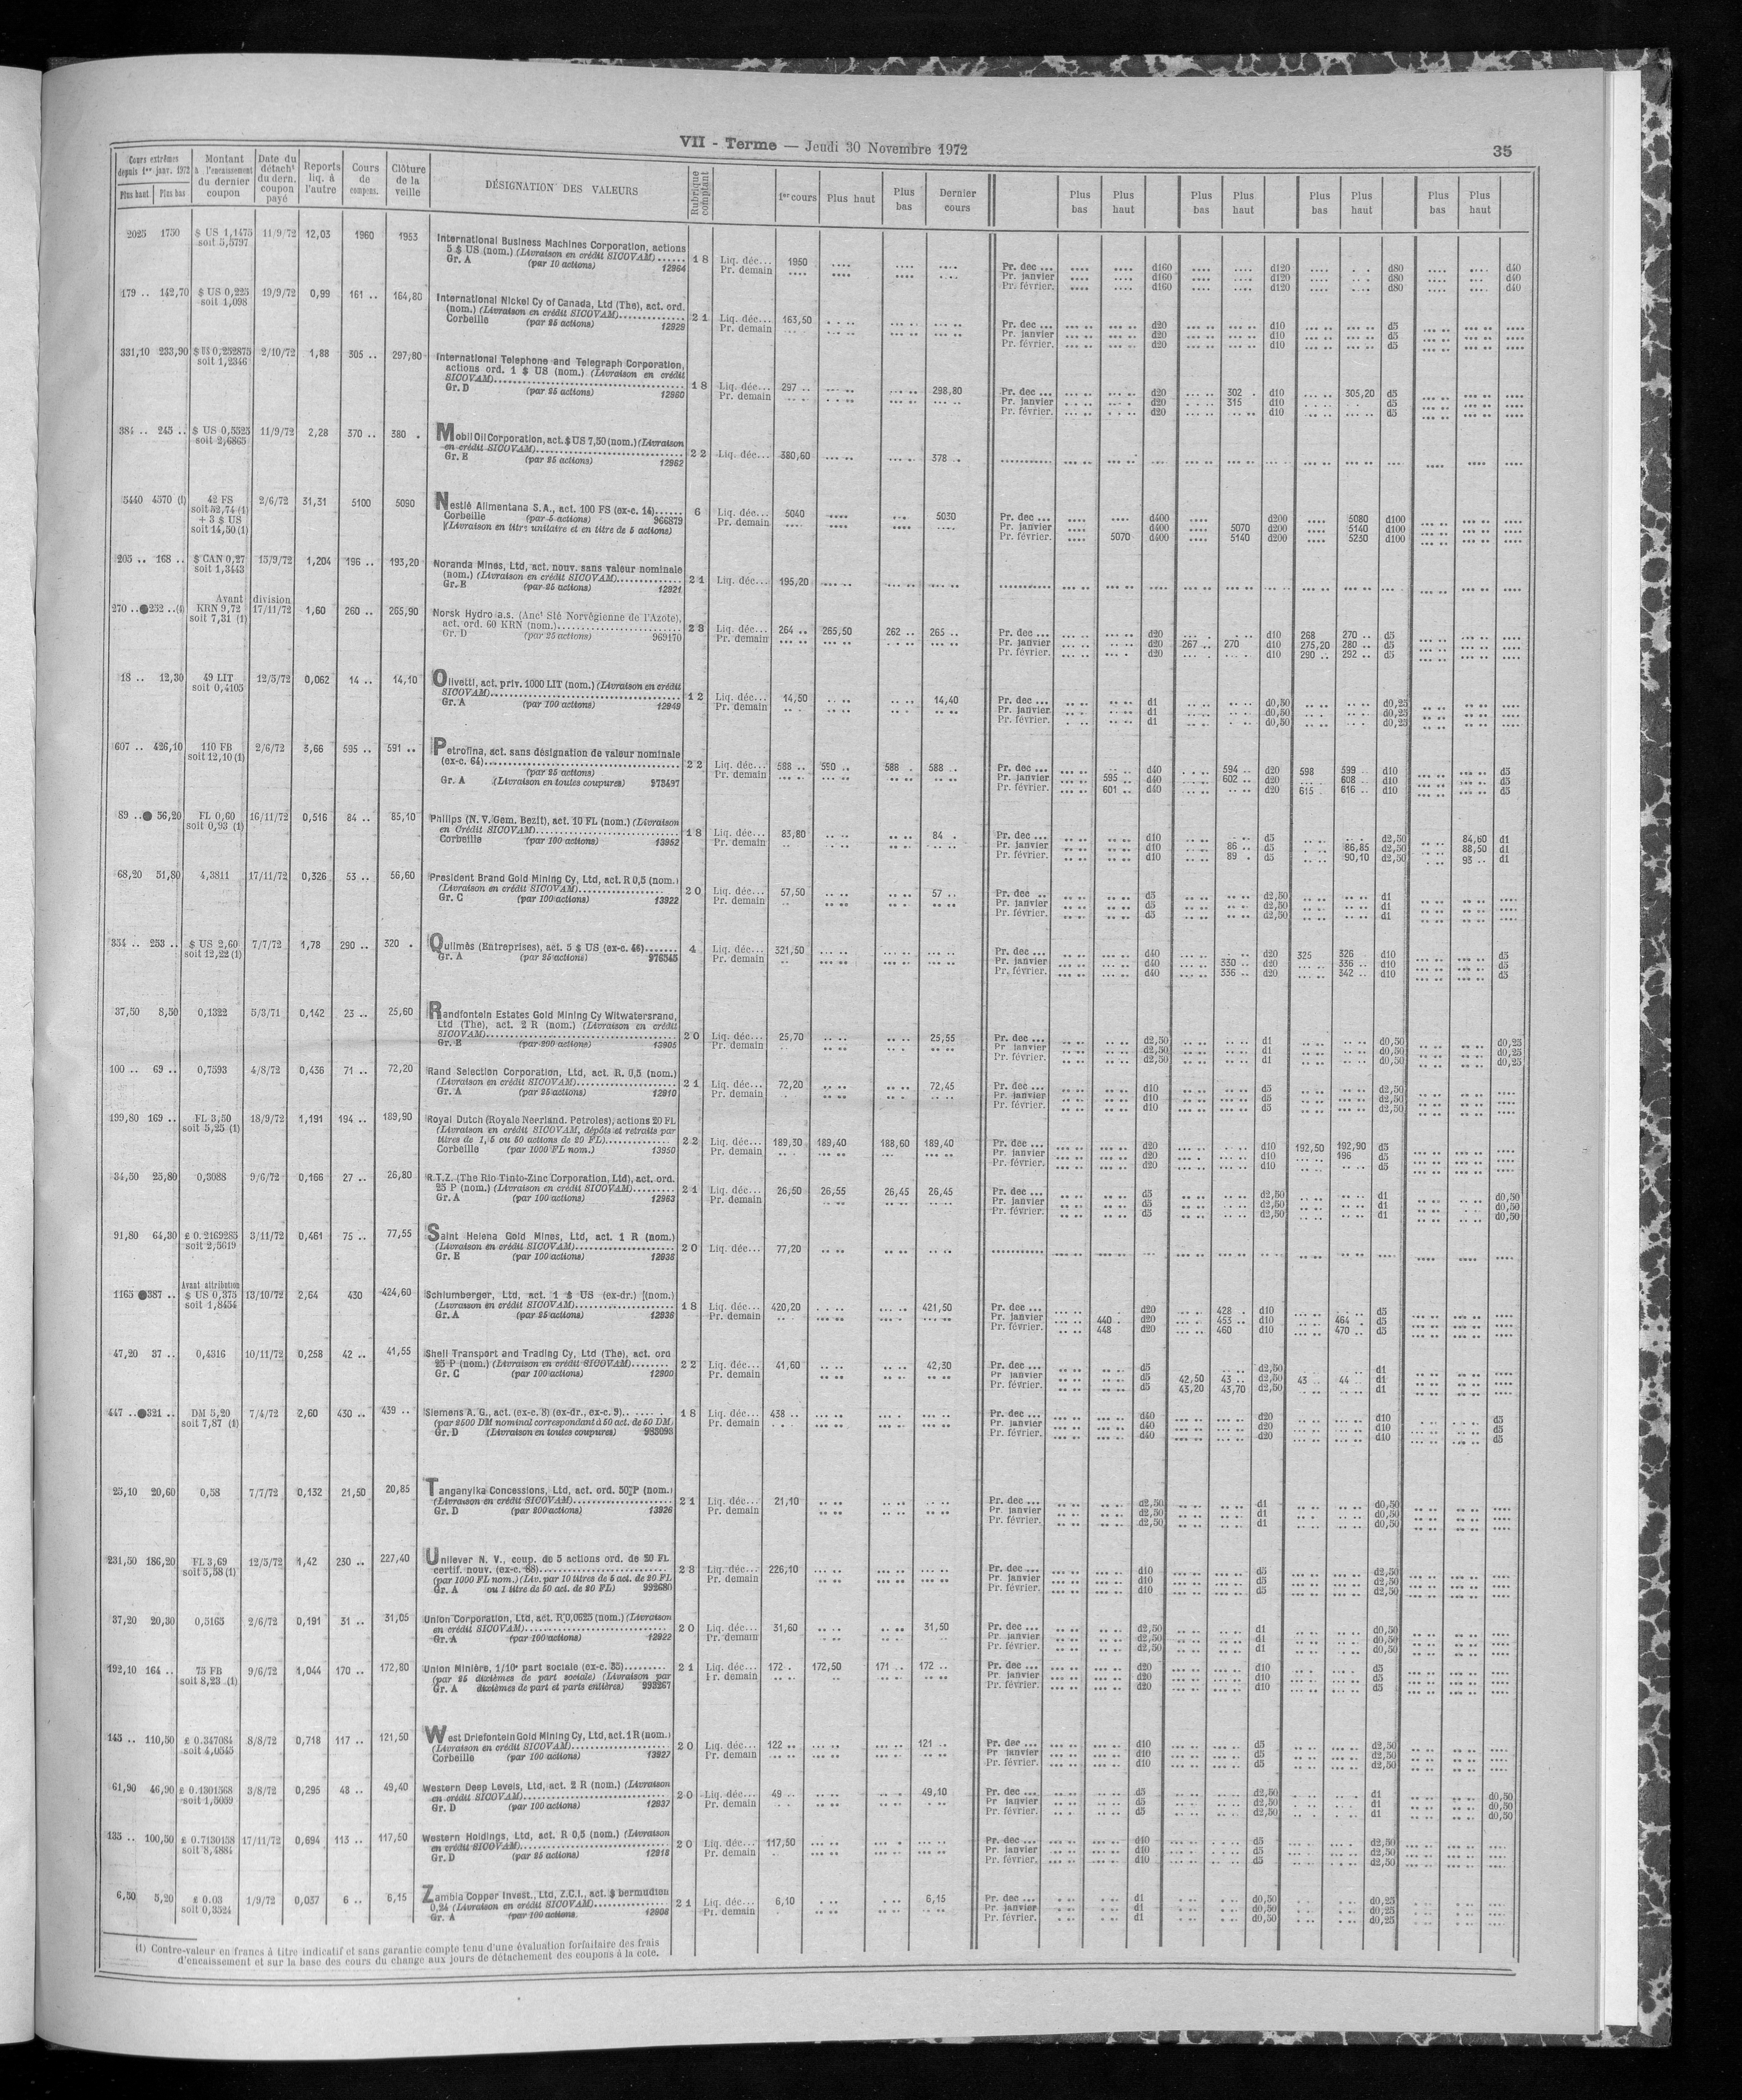 VII - Terme — Jeudi 30 Novembre 1972
35
Cours extrêmes depuis 1er janv. 1972 Plus haut Plus bas
Montant à l'encaissement du dernier coupon
Date du détacht du dern. coupon payé
Reports liq. à l'autre
Cours de compens.
Clôture de la veille
DÉSIGNATION DES VALEURS
Rubrique comptant
1er cours Plus haut Plus bas Dernier cours
Plus bas Plus haut Plus bas Plus haut Plus bas Plus haut Plus bas Plus haut
2025 1750 $ US 1,1475 11/9/72 12,03 1960 1953
soit 5,5797
International Business Machines Corporation, actions
5 $ US (nom.) (Livraison en crédit SICOVAM)......
Gr. A (par 10 actions) 12964
18 Liq. déc... 1950
Pr. demain
Pr. dec ... d160 d120 d80 d40
Pr. janvier d160 d120 d80 d40
Pr. février. d160 d120 d80 d40
179 .. 142,70 $ US 0,225 19/9/72 0,99 161 .. 164,80
soit 1,098
International Nickel Cy of Canada, Ltd (The), act. ord.
(nom.) (Livraison en crédit SICOVAM)..............
Corbeille (par 25 actions) 12929
21 Liq. déc... 163,50
Pr. demain
Pr. dec ... d20 d10 d5
Pr. janvier d20 d10 d5
Pr. février. d20 d10 d5
331,10 233,90 $ US 0,252875 2/10/72 1,88 305 .. 297,80
soit 1,2346
International Telephone and Telegraph Corporation,
actions ord. 1 $ US (nom.) (Livraison en crédit
SICOVAM)..............
Gr. D (par 25 actions) 12960
18 Liq. déc... 297 .. 298,80
Pr. demain
Pr. dec ... d20 302 . d10 305,20 d5
Pr. janvier d20 315 d10 d5
Pr. février. d20 d10 d5
384 .. 245 .. $ US 0,5525 11/9/72 2,28 370 .. 380 .
soit 2,6865
Mobil Oil Corporation, act. $ US 7,50 (nom.) (Livraison
en crédit SICOVAM)..............
Gr. E (par 25 actions) 12962
22 Liq. déc... 380,60 378 ..
5440 4570 (1) 42 FS 2/6/72 31,31 5100 5090
soit 52,74 (1)
+ 3 $ US
soit 14,50 (1)
Nestlé Alimentana S.A., act. 100 FS (ex-c. 14)......
Corbeille (par 5 actions) 966879
(Livraison en titre unitaire et en titre de 5 actions)
6 Liq. déc... 5040 5030
Pr. demain
Pr. dec ... d400 d200 5080 d100
Pr. janvier d400 5070 d200 5140 d100
Pr. février. 5070 d400 5140 d200 5230 d100
205 .. 168 .. $ CAN 0,27 15/9/72 1,204 196 .. 193,20
soit 1,3443
Noranda Mines, Ltd, act. nouv. sans valeur nominale
(nom.) (Livraison en crédit SICOVAM)..............
Gr. B (par 25 actions) 12921
21 Liq. déc... 195,20
Avant division
270 ..●252 ..(4) KRN 9,72 17/11/72 1,60 260 .. 265,90
soit 7,31 (1)
Norsk Hydro a.s. (Anct Sté Norvégienne de l'Azote),
act. ord. 60 KRN (nom.)..............
Gr. D (par 25 actions) 969170
23 Liq. déc... 264 .. 265,50 262 .. 265 ..
Pr. demain
Pr. dec ... d20 d10 268 270 .. d5
Pr. janvier d20 267 .. 270 d10 275,20 280 .. d5
Pr. février. d20 d10 290 .. 292 .. d5
18 .. 12,30 49 LIT 12/5/72 0,062 14 .. 14,10
soit 0,4105
Olivetti, act. priv. 1000 LIT (nom.) (Livraison en crédit
SICOVAM)..............
Gr. A (par 100 actions) 12949
12 Liq. déc... 14,50 14,40
Pr. demain
Pr. dec ... d1 d0,50 d0,25
Pr. janvier d1 d0,50 d0,25
Pr. février. d1 d0,50 d0,25
607 .. 426,10 110 FB 2/6/72 3,66 595 .. 591 ..
soit 12,10 (1)
Petrofina, act. sans désignation de valeur nominale
(ex-c. 64)..............
(par 25 actions)
Gr. A (Livraison en toutes coupures) 973497
22 Liq. déc... 588 .. 590 .. 588 . 588 ..
Pr. demain
Pr. dec ... d40 594 .. d20 598 599 .. d10 d5
Pr. janvier 595 .. d40 602 .. d20 608 .. d10 d5
Pr. février. 601 .. d40 d20 615 . 616 .. d10 d5
89 ..● 56,20 FL 0,60 16/11/72 0,516 84 .. 85,10
soit 0,93 (1)
Philips (N. V. Gem. Bezit), act. 10 FL (nom.) (Livraison
en Crédit SICOVAM)..............
Corbeille (par 100 actions) 13952
18 Liq. déc... 83,80 84 .
Pr. demain
Pr. dec ... d10 d5 d2,50 84,60 d1
Pr. janvier d10 86 .. d5 86,85 d2,50 88,50 d1
Pr. février. d10 89 . d5 90,10 d2,50 93 .. d1
68,20 51,80 4,3811 17/11/72 0,326 53 .. 56,60
President Brand Gold Mining Cy, Ltd, act. R 0,5 (nom.)
(Livraison en crédit SICOVAM)..............
Gr. C (par 100 actions) 13922
20 Liq. déc... 57,50 57 ..
Pr. demain
Pr. dec .. d5 d2,50 d1
Pr. janvier d5 d2,50 d1
Pr. février. d5 d2,50 d1
334 .. 253 .. $ US 2,60 7/7/72 1,78 290 .. 320 .
soit 12,22 (1)
Quilmès (Entreprises), act. 5 $ US (ex-c. 46).......
Gr. A (par 25 actions) 976545
4 Liq. déc... 321,50
Pr. demain
Pr. dec ... d40 d20 325 326 d10 d5
Pr. janvier d40 330 .. d20 336 .. d10 d5
Pr. février. d40 336 .. d20 342 .. d10 d5
37,50 8,50 0,1322 5/3/71 0,142 23 .. 25,60
Randfontein Estates Gold Mining Cy Witwatersrand,
Ltd (The), act. 2 R (nom.) (Livraison en crédit
SICOVAM)..............
Gr. E (par 200 actions) 13905
20 Liq. déc... 25,70 25,55
Pr. demain
Pr. dec ... d2,50 d1 d0,50 d0,25
Pr janvier d2,50 d1 d0,50 d0,25
Pr. février. d2,50 d1 d0,50 d0,25
100 .. 69 .. 0,7593 4/8/72 0,436 71 .. 72,20
Rand Selection Corporation, Ltd, act. R. 0,5 (nom.)
(Livraison en crédit SICOVAM)..............
Gr. A (par 25 actions) 12910
21 Liq. déc... 72,20 72,45
Pr. demain
Pr. dec ... d10 d5 d2,50
Pr. janvier d10 d5 d2,50
Pr. février. d10 d5 d2,50
199,80 169 .. FL 3,50 18/9/72 1,191 194 .. 189,90
soit 5,25 (1)
Royal Dutch (Royale Neerland. Petroles), actions 20 FL
(Livraison en crédit SICOVAM, dépôts et retraits par
titres de 1, 5 ou 50 actions de 20 FL)..............
Corbeille (par 1000 FL nom.) 13950
22 Liq. déc... 189,30 189,40 188,60 189,40
Pr. demain
Pr. dec ... d20 d10 192,50 192,90 d5
Pr. janvier d20 d10 196 d5
Pr. février. d20 d10 d5
34,50 25,80 0,3088 9/6/72 0,166 27 .. 26,80
R.T.Z. (The Rio Tinto-Zinc Corporation, Ltd), act. ord.
25 P (nom.) (Livraison en crédit SICOVAM)..........
Gr. A (par 100 actions) 12963
21 Liq. déc... 26,50 26,55 26,45 26,45
Pr. demain
Pr. dec ... d5 d2,50 d1 d0,50
Pr. janvier d5 d2,50 d1 d0,50
Pr. février. d5 d2,50 d1 d0,50
91,80 64,30 £ 0.2169285 3/11/72 0,461 75 .. 77,55
soit 2,5619
Saint Helena Gold Mines, Ltd, act. 1 R (nom.)
(Livraison en crédit SICOVAM)..............
Gr. E (par 100 actions) 12935
20 Liq. déc... 77,20
Avant attribution
1165 ●387 .. $ US 0,375 13/10/72 2,64 430 424,60
soit 1,8454
Schlumberger, Ltd, act. 1 $ US (ex-dr.) (nom.)
(Livraison en crédit SICOVAM)..............
Gr. A (par 25 actions) 12936
18 Liq. déc... 420,20 421,50
Pr. demain
Pr. dec ... d20 428 . d10 d5
Pr. janvier 440 . d20 453 .. d10 464 . d5
Pr. février. 448 d20 460 d10 470 .. d5
47,20 37 .. 0,4316 10/11/72 0,258 42 .. 41,55
Shell Transport and Trading Cy, Ltd (The), act. ord
25 P (nom.) (Livraison en crédit SICOVAM)........
Gr. C (par 100 actions) 12900
22 Liq. déc... 41,60 42,30
Pr. demain
Pr. dec ... d5 d2,50 d1
Pr janvier d5 42,50 43 .. d2,50 43 .. 44 .. d1
Pr. février. d5 43,20 43,70 d2,50 d1
447 ..●321 .. DM 5,20 7/4/72 2,60 430 .. 439 ..
soit 7,87 (1)
Siemens A. G., act. (ex-c. 8) (ex-dr., ex-c. 9)..
(par 2500 DM nominal correspondant à 50 act. de 50 DM)
Gr. D (Livraison en toutes coupures) 983093
18 Liq. déc... 438 ..
Pr. demain
Pr. dec ... d40 d20 d10 d5
Pr. janvier d40 d20 d10 d5
Pr. février. d40 d20 d10 d5
25,10 20,60 0,58 7/7/72 0,132 21,50 20,85
Tanganyika Concessions, Ltd, act. ord. 50 P (nom.)
(Livraison en crédit SICOVAM)..............
Gr. D (par 200 actions) 13926
21 Liq. déc... 21,10
Pr. demain
Pr. dec ... d2,50 d1 d0,50
Pr. janvier d2,50 d1 d0,50
Pr. février. d2,50 d1 d0,50
231,50 186,20 FL 3,69 12/5/72 1,42 230 .. 227,40
soit 5,58 (1)
Unilever N. V., coup. de 5 actions ord. de 20 FL
certif. nouv. (ex-c. 88)..............
(par 1000 FL nom.) (Liv. par 10 titres de 5 act. de 20 FL
Gr. A ou 1 titre de 50 act. de 20 FL) 992680
23 Liq. déc... 226,10
Pr. demain
Pr. dec ... d10 d5 d2,50
Pr janvier d10 d5 d2,50
Pr. février. d10 d5 d2,50
37,20 20,30 0,5165 2/6/72 0,191 31 .. 31,05
Union Corporation, Ltd, act. R 0,0625 (nom.) (Livraison
en crédit SICOVAM)..............
Gr. A (par 100 actions) 12922
20 Liq. déc... 31,60 31,50
Pr. demain
Pr. dec ... d2,50 d1 d0,50
Pr. janvier d2,50 d1 d0,50
Pr. février. d2,50 d1 d0,50
192,10 164 .. 75 FB 9/6/72 1,044 170 .. 172,80
soit 8,23 (1)
Union Minière, 1/10e part sociale (ex-c. 35).........
(par 25 dixièmes de part sociale) (Livraison par
Gr. A dixièmes de part et parts entières) 993267
21 Liq. déc... 172 . 172,50 171 .. 172 ..
Pr. demain
Pr. dec ... d20 d10 d5
Pr. janvier d20 d10 d5
Pr. février. d20 d10 d5
145 .. 110,50 £ 0.347084 8/8/72 0,718 117 .. 121,50
soit 4,0545
West Driefontein Gold Mining Cy, Ltd, act. 1 R (nom.)
(Livraison en crédit SICOVAM)..............
Corbeille (par 100 actions) 13927
20 Liq. déc... 122 .. 121 ..
Pr. demain
Pr. dec ... d10 d5 d2,50
Pr janvier d10 d5 d2,50
Pr. février. d10 d5 d2,50
61,90 46,90 £ 0.1301568 3/8/72 0,295 48 .. 49,40
soit 1,5059
Western Deep Levels, Ltd, act. 2 R (nom.) (Livraison
en crédit SICOVAM)..............
Gr. D (par 100 actions) 12937
20 Liq. déc... 49 .. 49,10
Pr. demain
Pr. dec ... d5 d2,50 d1 d0,50
Pr janvier d5 d2,50 d1 d0,50
Pr. février. d5 d2,50 d1 d0,50
135 .. 100,50 £ 0.7130158 17/11/72 0,694 113 .. 117,50
soit 8,4884
Western Holdings, Ltd, act. R 0,5 (nom.) (Livraison
en crédit SICOVAM)..............
Gr. D (par 25 actions) 12918
20 Liq. déc... 117,50
Pr. demain
Pr. dec ... d10 d5 d2,50
Pr. janvier d10 d5 d2,50
Pr. février. d10 d5 d2,50
6,50 5,20 £ 0.03 1/9/72 0,037 6 .. 6,15
soit 0,3524
Zambia Copper Invest., Ltd, Z.C.I., act. $ bermudien
0,24 (Livraison en crédit SICOVAM)..............
Gr. A (par 100 actions. 12908
21 Liq. déc... 6,10 6,15
Pr. demain
Pr. dec ... d1 d0,50 d0,25
Pr. janvier d1 d0,50 d0,25
Pr. février. d1 d0,50 d0,25
(1) Contre-valeur en francs à titre indicatif et sans garantie compte tenu d'une évaluation forfaitaire des frais
d'encaissement et sur la base des cours du change aux jours de détachement des coupons à la cote.